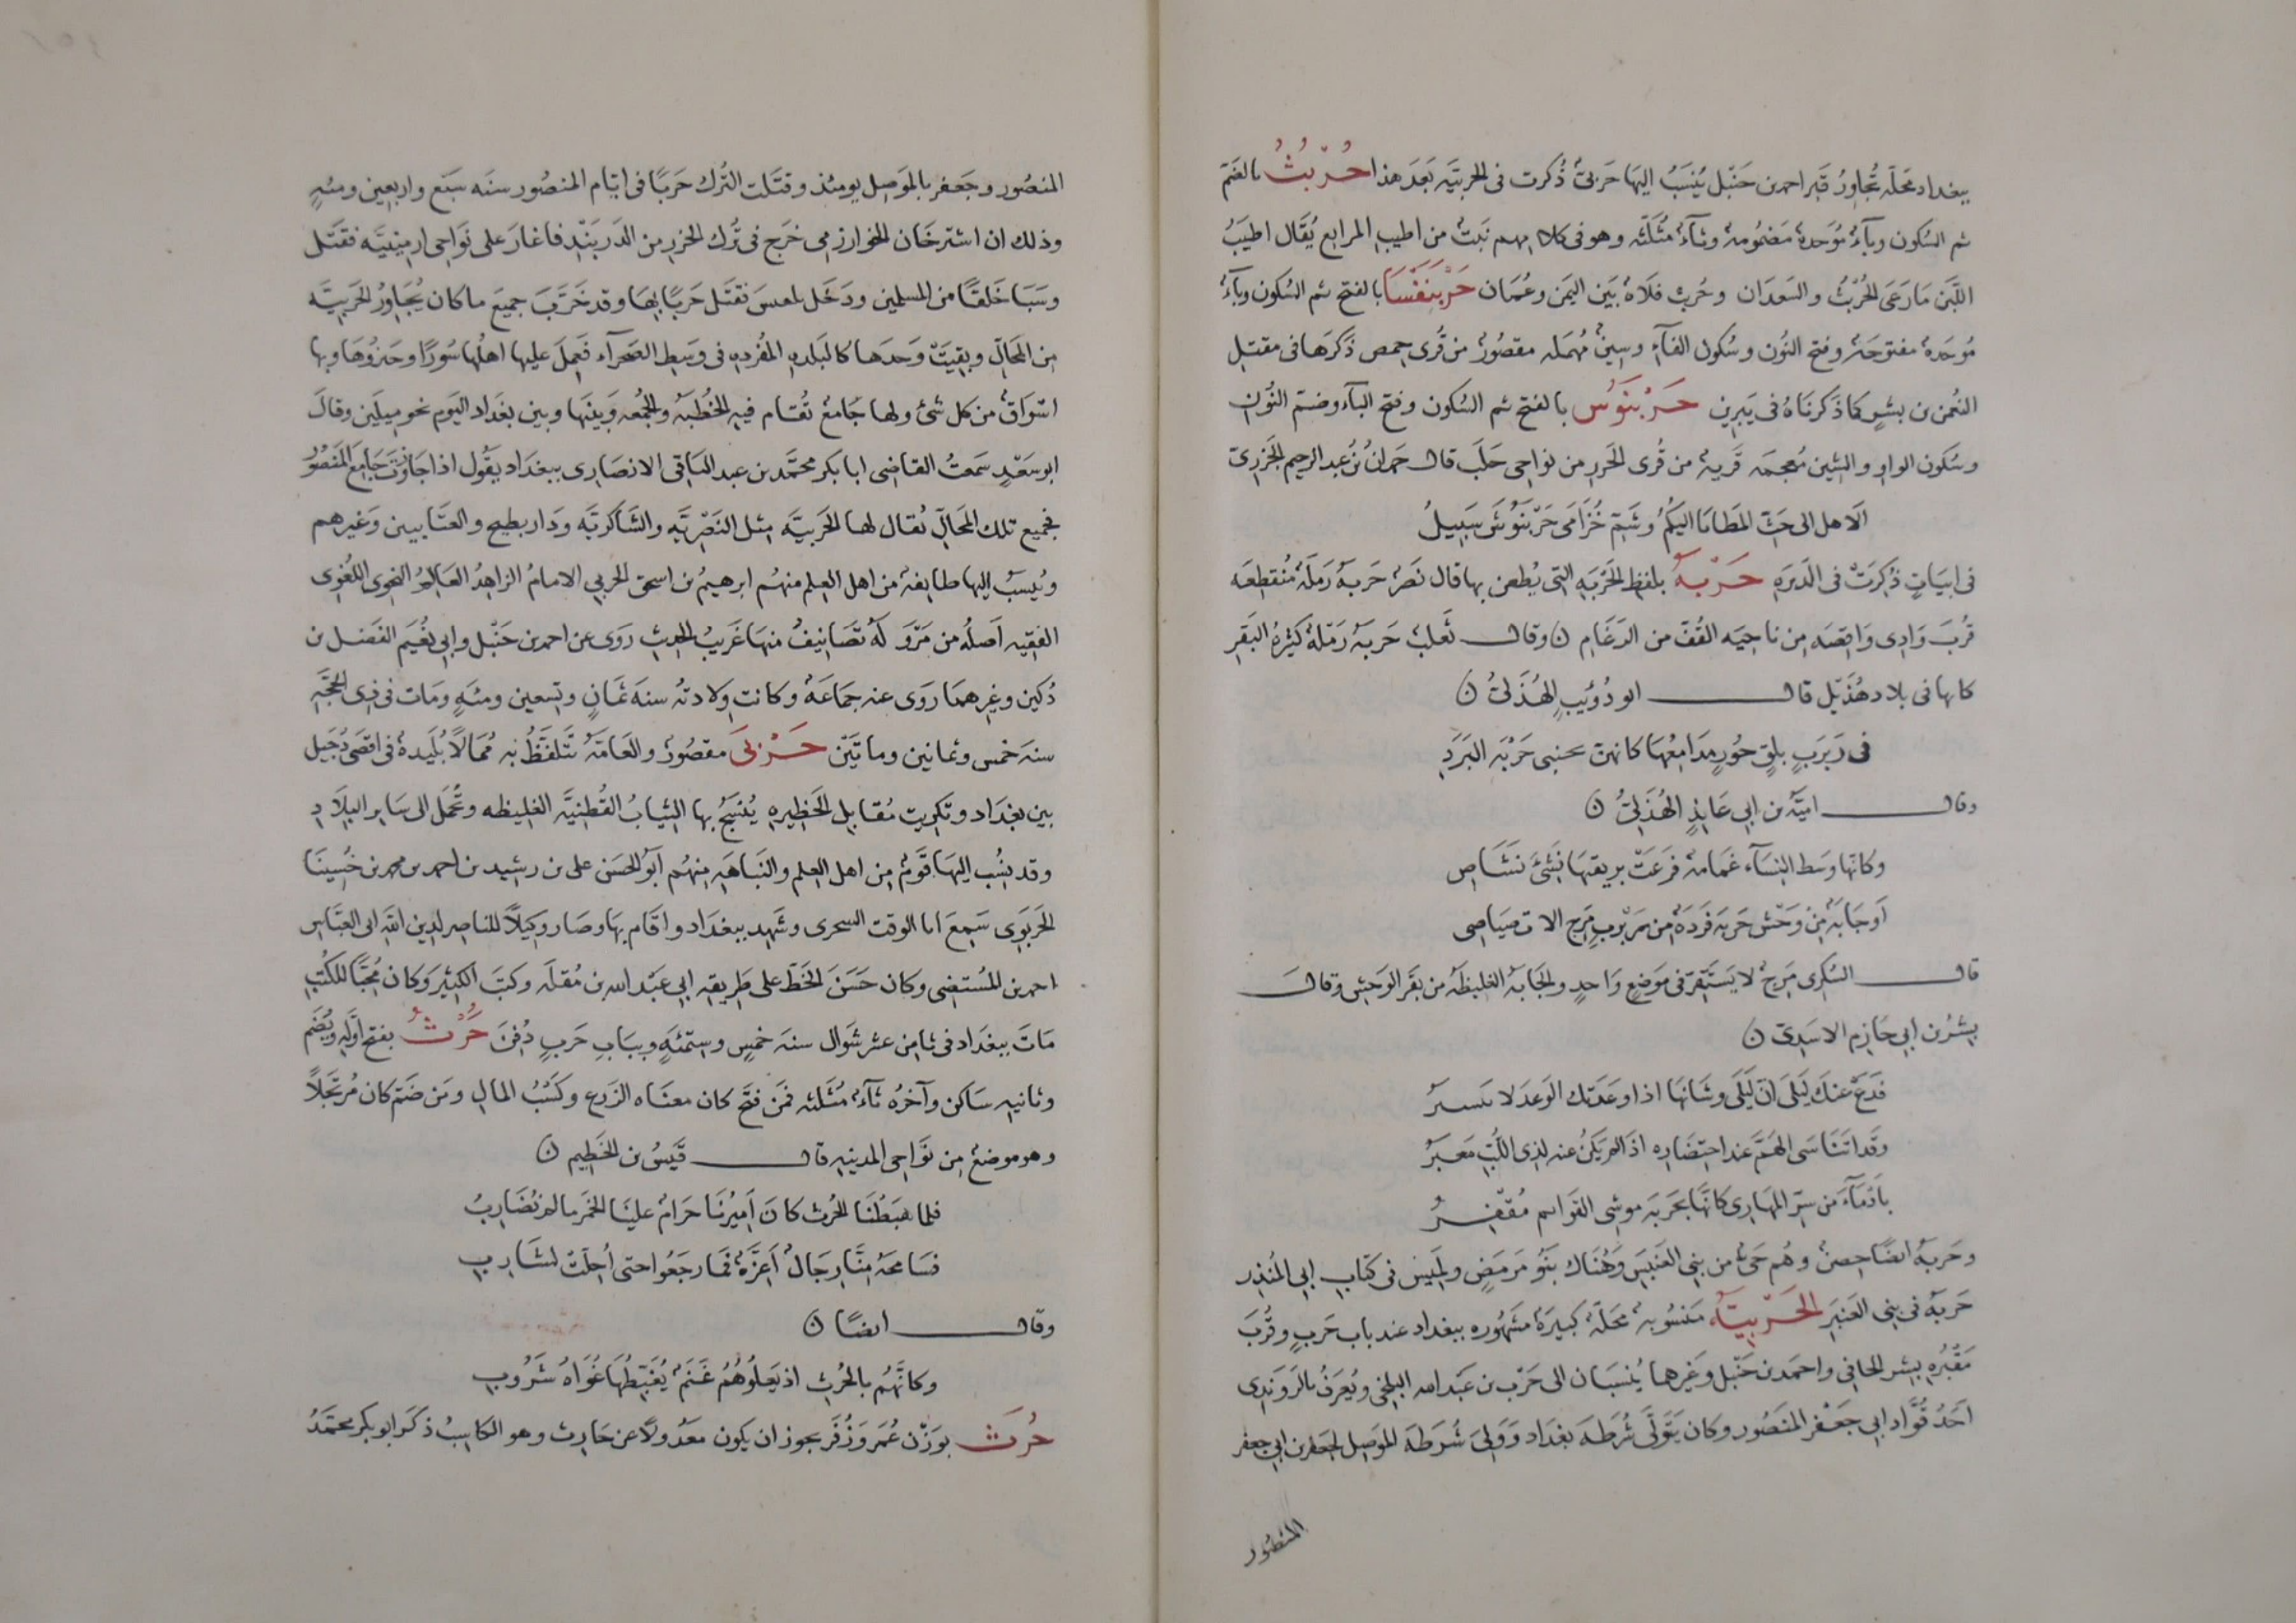 ببغداد محلّه تُجاوِرُ قبر احمد بن حَنْبَل يُنسَبُ اليهَا حَربىّ ذُكرت فى الحربيَّه بَعدَ هذا حُرْبُثُ بالضَم
ثم السُكون وبَآءٌ مُوَحدةٌ مَضمُومةٌ وثآءٌ مُثَلَّثه وهو فى كلامهم نَبتٌ من اطيب المراتع يُقَال اطيَبُ
اللَّبَن مَا رَعَى الحُرْبُثُ والسَعدَان وحُربث فلَاةٌ بَين اليمَن وعُمَان حَرْبَنَفْسَا بالفتح ثم السُكون وبآءٌ
مُوحَدةٌ مفتوحةٌ وفتح النُون وسُكون الفآءِ وسِينٌ مُهمَله مقصُورٌ من قُرى حِمص ذكرَها فى مقتل
النُعمن بن بشيرٍ كما ذكرنَاهُ فى يَبرِين حَرْبَنُوْش بالفتح ثم السُكون وفتح البَآء وضم النُون
وسُكون الواو والشِين مُعجمَه قريةٌ من قُرى الجَزر من نواحى حَلَب قال حَمدانُ بنُ عبد الرحيم الجَزرىّ
الَا هل الى حَثِّ المَطايَا اليكُمُ وشَمِّ خُزَامَى حَرْبَنُوشَ سَبيلُ
فى ابيَاتٍ ذُكِرَتْ فى الدَيَرَهِ حَرْبَةُ بلفظِ الحَرْبَهِ التى يُطعن بها قال نَصْرٌ حَربةُ رَملَةٌ مُنقطِعَه
قُربَ وَادِى وَاقِصَه مِن نَاحِيَه القُفِّ من الرَغَام ن وقال ثَعلبٌ حَربةُ رَمَلةٌ كثيرةُ البَقَرِ
كانها فى بلاد هُذَيْل قال ابو ذُوَيبٍ الهُذَلىُّ ن
فى رَبرَبٍ يلَقٍ حُورٍ مَدامِعُهَا كانهن بجنبى حَرْبَه البَرَدِ
وقال اميّه بن ابى عَايذٍ الهُذَلىُّ ن
وكانّها وَسط النِسَآء غمَامَةٌ فَرعَتْ بريقتهَا نَشِىءَ نَشَاصِ
اَو جَابةٌ مِن وَحْش حَربة فَردَةٌ مِن رَبْرَبٍ مَرِجٍ الات صَيَاصِى
قال السُكرى مَرِجٌ لا يَستَقِرّ فى مَوضعٍ وَاحدٍ والجَابةُ الغليظةُ من بَقَر الوَحش وقالَ
بِشرُ بن ابى حَازِم الاسَدِىّ ن
فَدَعْ عنكَ لَيلَى انَّ لَيلَى وشَانَهَا اذا وعَدَتك الوَعدَ لا يتَيسرُ
وقد اتَنَاسَى الهَمَّ عند احتِضَارِه اذا لم يَكنْ عنه لذِى اللُّبِ مَعبَرُ
بِاَدْمَآءَ من سِرِّ المهَارِى كانَّها بحَربَه موشِى القوَائم مُقفِرُ
وحَربةُ ايضًا حِصنٌ وهُم حَىٌّ من بنى العَنبرَ وَهُنَاك بَنُو مَرمَضٍ ولميس فى كتَاب ابى المُنذِر
حَربةُ فى بنى العَنبَرِ الحَرْبِيَّةُ مَنسُوبةٌ مَحَلّةٌ كبيرَةٌ مَشهُورَه ببغداد عند باب حَربٍ وقُربَ
مَقبُرَهِ بِشرٍ الحَافى واحمَد بن حَنْبَل وَغيرهما يُنسَبَان الى حَرْب بن عَبد الله البلخى ويُعرَفُ بالرَوَنِدِى
اَحَدُ قُوَّاد ابى جَعْفر المنصُور وكان يَتَوَلَّى شُرطةَ بغدَاد وَوَلِىَ شُرطةَ المَوصِل لجعفر بن ابى جعفر
المنصُور
المنصُور وجَعفر بالمَوصِل يومئذ وقتَلت التُرك حَربًا فى ايّام المنصُور سنَه سَبع واربعين ومئهٍ
وذلك ان اشترخَان الخوارزمى خرَج فى تُرك الخزر من الدَربَند فاغارَ على نَوَاحِى ارمينيَّه فقتَل
وسَبَا خَلقًا من المسلمين ودَخَل تفليس فقتَل حَربًا بها وقد خَرّبَ جميعَ ما كان يُجَاوِرُ الحَربيَّه
مِن المَحَالِّ وبقِيَتْ وَحدَها كالبَلدِه المُفردِهِ فى وَسَطِ الصَحرآء فعَمِلَ عليها اهلُها سُورًا وحَيزُوهَا وبها
اسوَاقٌ من كل شئٍ ولها جَامعٌ تُقَام فيه الخُطبَهُ والجُمعه وَبَينَها وبين بغدَاد اليَوم نحو ميلَين وقالَ
ابو سَعدٍ سَمعتُ القاضى ابا بكر محمَّد بن عبد البَاقى الانصَارى ببغدَاد يقُول اذا جَاوَزتَ جَامِعَ المنصُور
فجميع تلك المَحَالِّ يُقال لها الحَربيَّه مثل النَصرِيَّه والشَاكرِيَّه ودَار بطيخ والعَتَّابيين وغَيرِهم
ويُنسَبُ اليها طايفةٌ من اهل العِلم منهُم ابرهيمُ بن اسحق الحربى الامامُ الزاهدُ العَالِمُ النحوى اللغُوى
الفقيه اَصلُه من مَرْوَ لَهُ تصَانيفُ منهَا غَريبُ الحديث رَوَى عن احمد بن حَنْبَل وابى نُعَيم الفَضل بن
دُكين وغيرهمَا رَوَى عنه جمَاعَةٌ وكانت وِلَادتهُ سنه ثمَانٍ وتِسعين ومئهٍ ومَات فى ذى الحجّهِ
سنه خمس وثمانين وماتَين حَرْبَى مقصُورٌ والعَامّةُ تَتَلفّظُ به مُمَالًا بُلَيدةٌ فى اقصَى دُجَيل
بين بغدَاد وتكريت مُقَابل الحَظيرهِ يُنسَجُ بها الثيابُ القُطنيَّه الغليظه وتُحمَل الى سَاير البلَادِ
وقد نُسِب اليهَا قَومٌ مِن اهل العِلم والنَبَاهَهِ منهُم ابَو الحَسن على بن رشيد بن احمد بن محمد بن حُسَينَا
الحَربَوِى سَمِعَ ابا الوقت السجزى وشَهِد ببغدَاد واقَام بهَا وصَار وَكِيلًا للناصِر لدِين الله ابى العبّاس
احمد بن المُستضِى وكان حَسَنَ الخَطِّ على طَرِيقه ابى عَبد الله بن مُقلَه وكتبَ الكثير وَكان مُحبًّا للكتُبِ
مَاتَ ببغدَاد فى ثامن عشر شَوال سنه خمسٍ وستِّمئهٍ وببَابِ حَربٍ دُفِنَ حَُرْثٌ بفتح اوّله ويُضَم
وثانيه سَاكن وآخرهُ ثآءٌ مُثَلثه فمَن فتَح كان معنَاه الزَرع وكَسْبُ المَالِ ومَن ضَم كان مُرتَجَلًا
وهو موضعٌ مِن نوَاحِى المدينهِ قال قَيسُ بن الخَطِيم ن
فلمّا هَبَطْنَا الحُرثَ كانَ اَميرُنَا حَرَامٌ علينَا الخَمرَ ما لم نُضَاربُ
فسَامحَهُ مِنّا رِجَالٌ اَعِزَّةٌ فمَا رجَعُوا حتى اُحِلَّتْ لشَارِبِ
وقال ايضًا ن
وكانّهُم بالحُرثِ اذ يَعلُوهُمُ غَنَمٌ يُعَبِّطُهَا غُوَاهُ شَرُوبِ
حُرَثُ بوَزْن عُمَر وزُفَر يجوز ان يكون مَعدُولًا عن حَارث وهو الكاسِبُ ذكرَ ابو بكر محمَّدُ